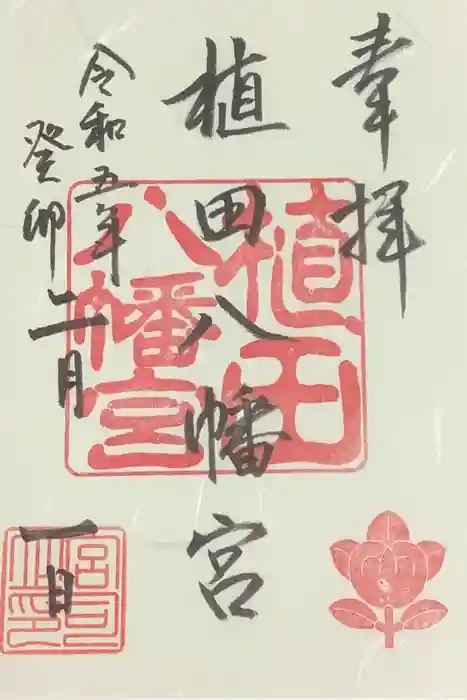 奉拝
植田八幡宮
令和五年
癸卯
二月
一日
植田
八幡宮